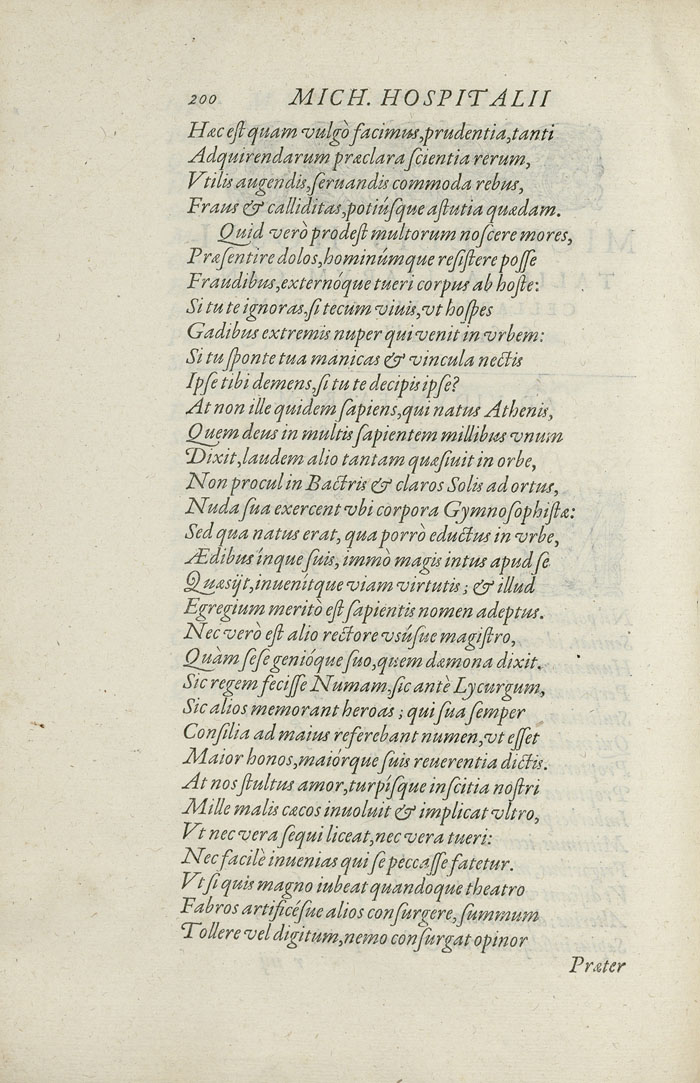 200 MICH. HOSPITALII
Hæc est quam vulgò facimus, prudentia, tanti
Adquirendarum præclara scientia rerum,
Vtilis augendis, seruandis commoda rebus,
Fraus & calliditas, potiúsque astutia quædam.
Quid verò prodest multorum noscere mores,
Præsentire dolos, hominúmque resistere posse
Fraudibus, externóque tueri corpus ab hoste:
Si tu te ignoras, si tecum viuis, vt hospes
Gadibus extremis nuper qui venit in vrbem:
Si tu sponte tua manicas & vincula nectis
Ipse tibi demens, si tu te decipis ipse?
At non ille quidem sapiens, qui natus Athenis,
Quem deus in multis sapientem millibus vnum
Dixit, laudem alio tantam quæsiuit in orbe,
Non procul in Bactris & claros Solis ad ortus,
Nuda sua exercent vbi corpora Gymnosophistæ:
Sed qua natus erat, qua porrò eductus in vrbe,
Ædibus ínque suis, immò magis intus apud se
Quæsijt, inuenítque viam virtutis; & illud
Egregium meritò est sapientis nomen adeptus.
Nec verò est alio rectore vsúsue magistro,
Quàm sese genióque suo, quem dæmona dixit.
Sic regem fecisse Numam, sic antè Lycurgum,
Sic alios memorant heroas; qui sua semper
Consilia ad maius referebant numen, vt esset
Maior honos, maiórque suis reuerentia dictis.
At nos stultus amor, turpísque inscitia nostri
Mille malis cæcos inuoluit & implicat vltro,
Vt nec vera sequi liceat, nec vera tueri:
Nec facilè inuenias qui se peccasse fatetur.
Vt si quis magno iubeat quandoque theatro
Fabros artificésue alios consurgere, summum
Tollere vel digitum, nemo consurgat opinor
Præter